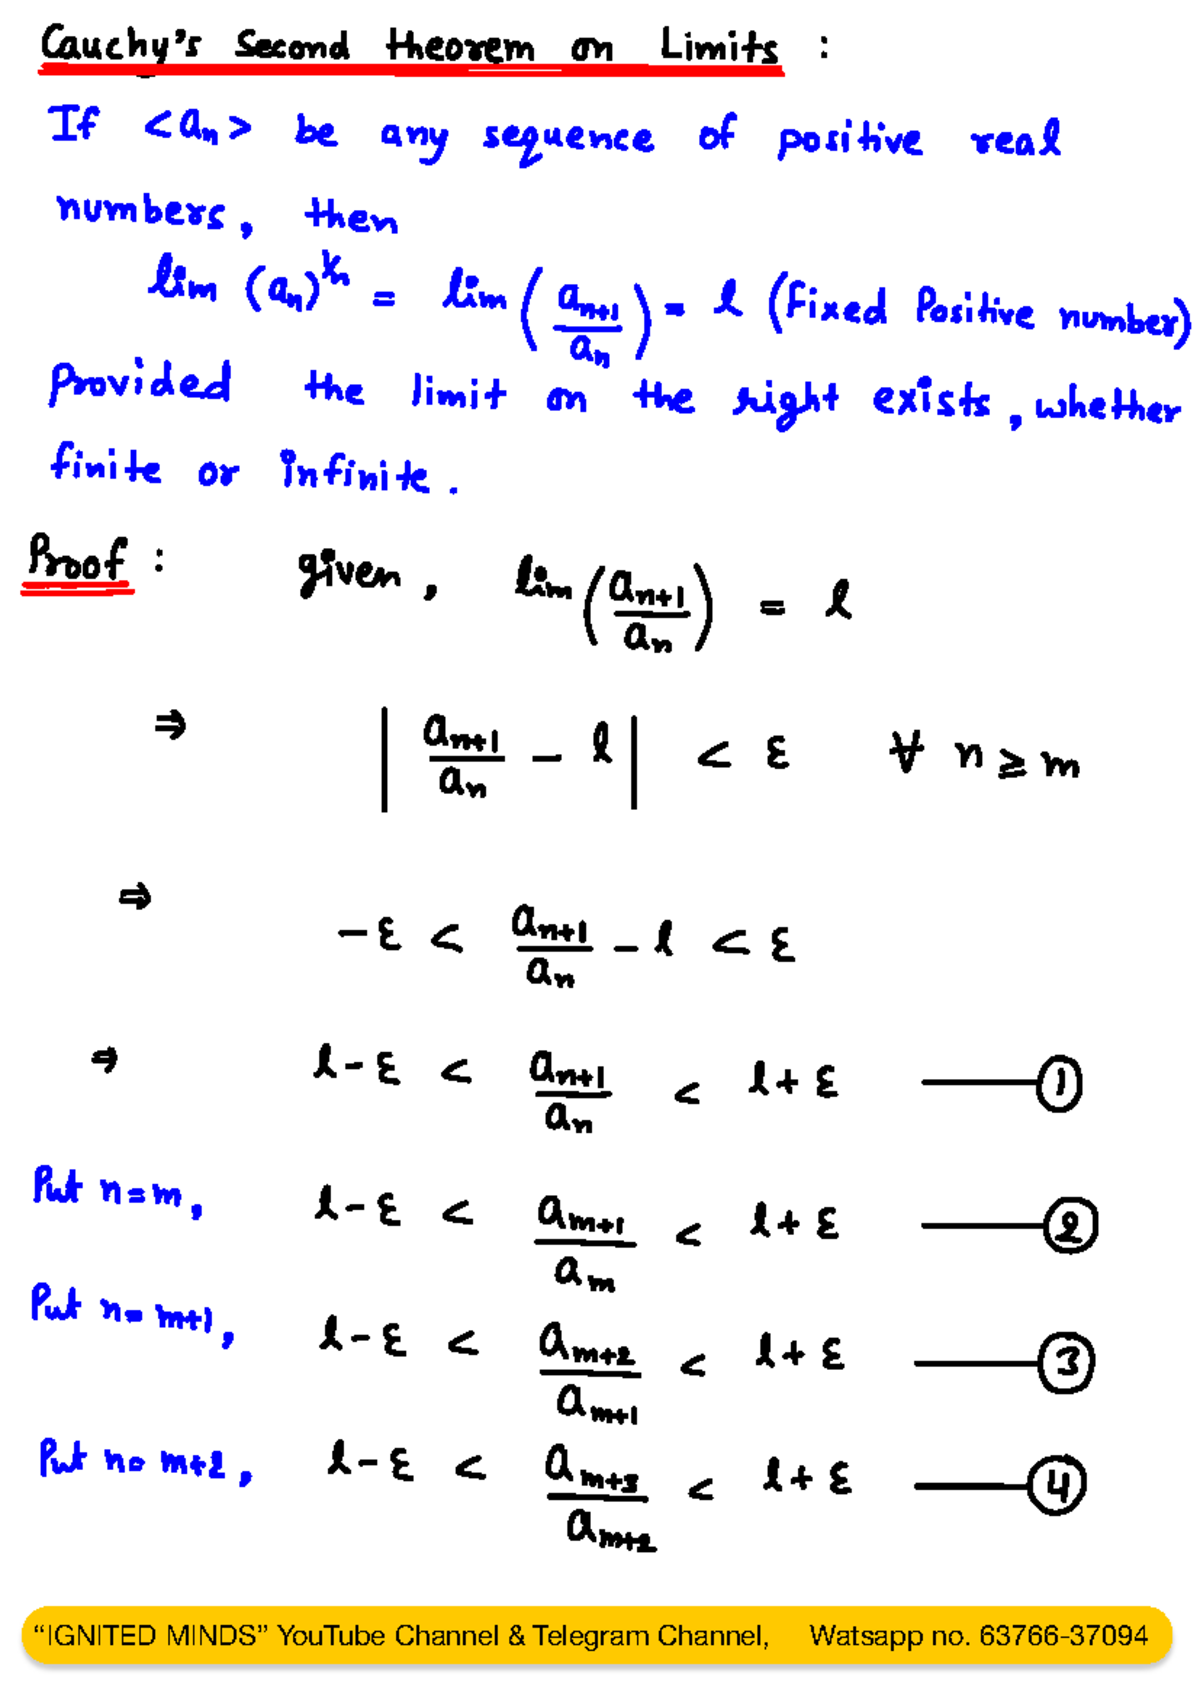 Cauchy's Second theorem on Limits :
If <aₙ> be any sequence of positive real
numbers, then
lim (aₙ)^(1/n) = lim (aₙ₊₁/aₙ) = l (Fixed Positive number)
Provided the limit on the right exists, whether
finite or infinite.
Proof : given, lim (aₙ₊₁/aₙ) = l
⇒ |aₙ₊₁/aₙ - l| < ε ∀ n ≥ m
⇒ -ε < aₙ₊₁/aₙ - l < ε
⇒ l-ε < aₙ₊₁/aₙ < l+ε —— ①
Put n=m, l-ε < aₘ₊₁/aₘ < l+ε —— ②
Put n=m+1, l-ε < aₘ₊₂/aₘ₊₁ < l+ε —— ③
Put n=m+2, l-ε < aₘ₊₃/aₘ₊₂ < l+ε —— ④
“IGNITED MINDS” YouTube Channel & Telegram Channel, Watsapp no. 63766-37094